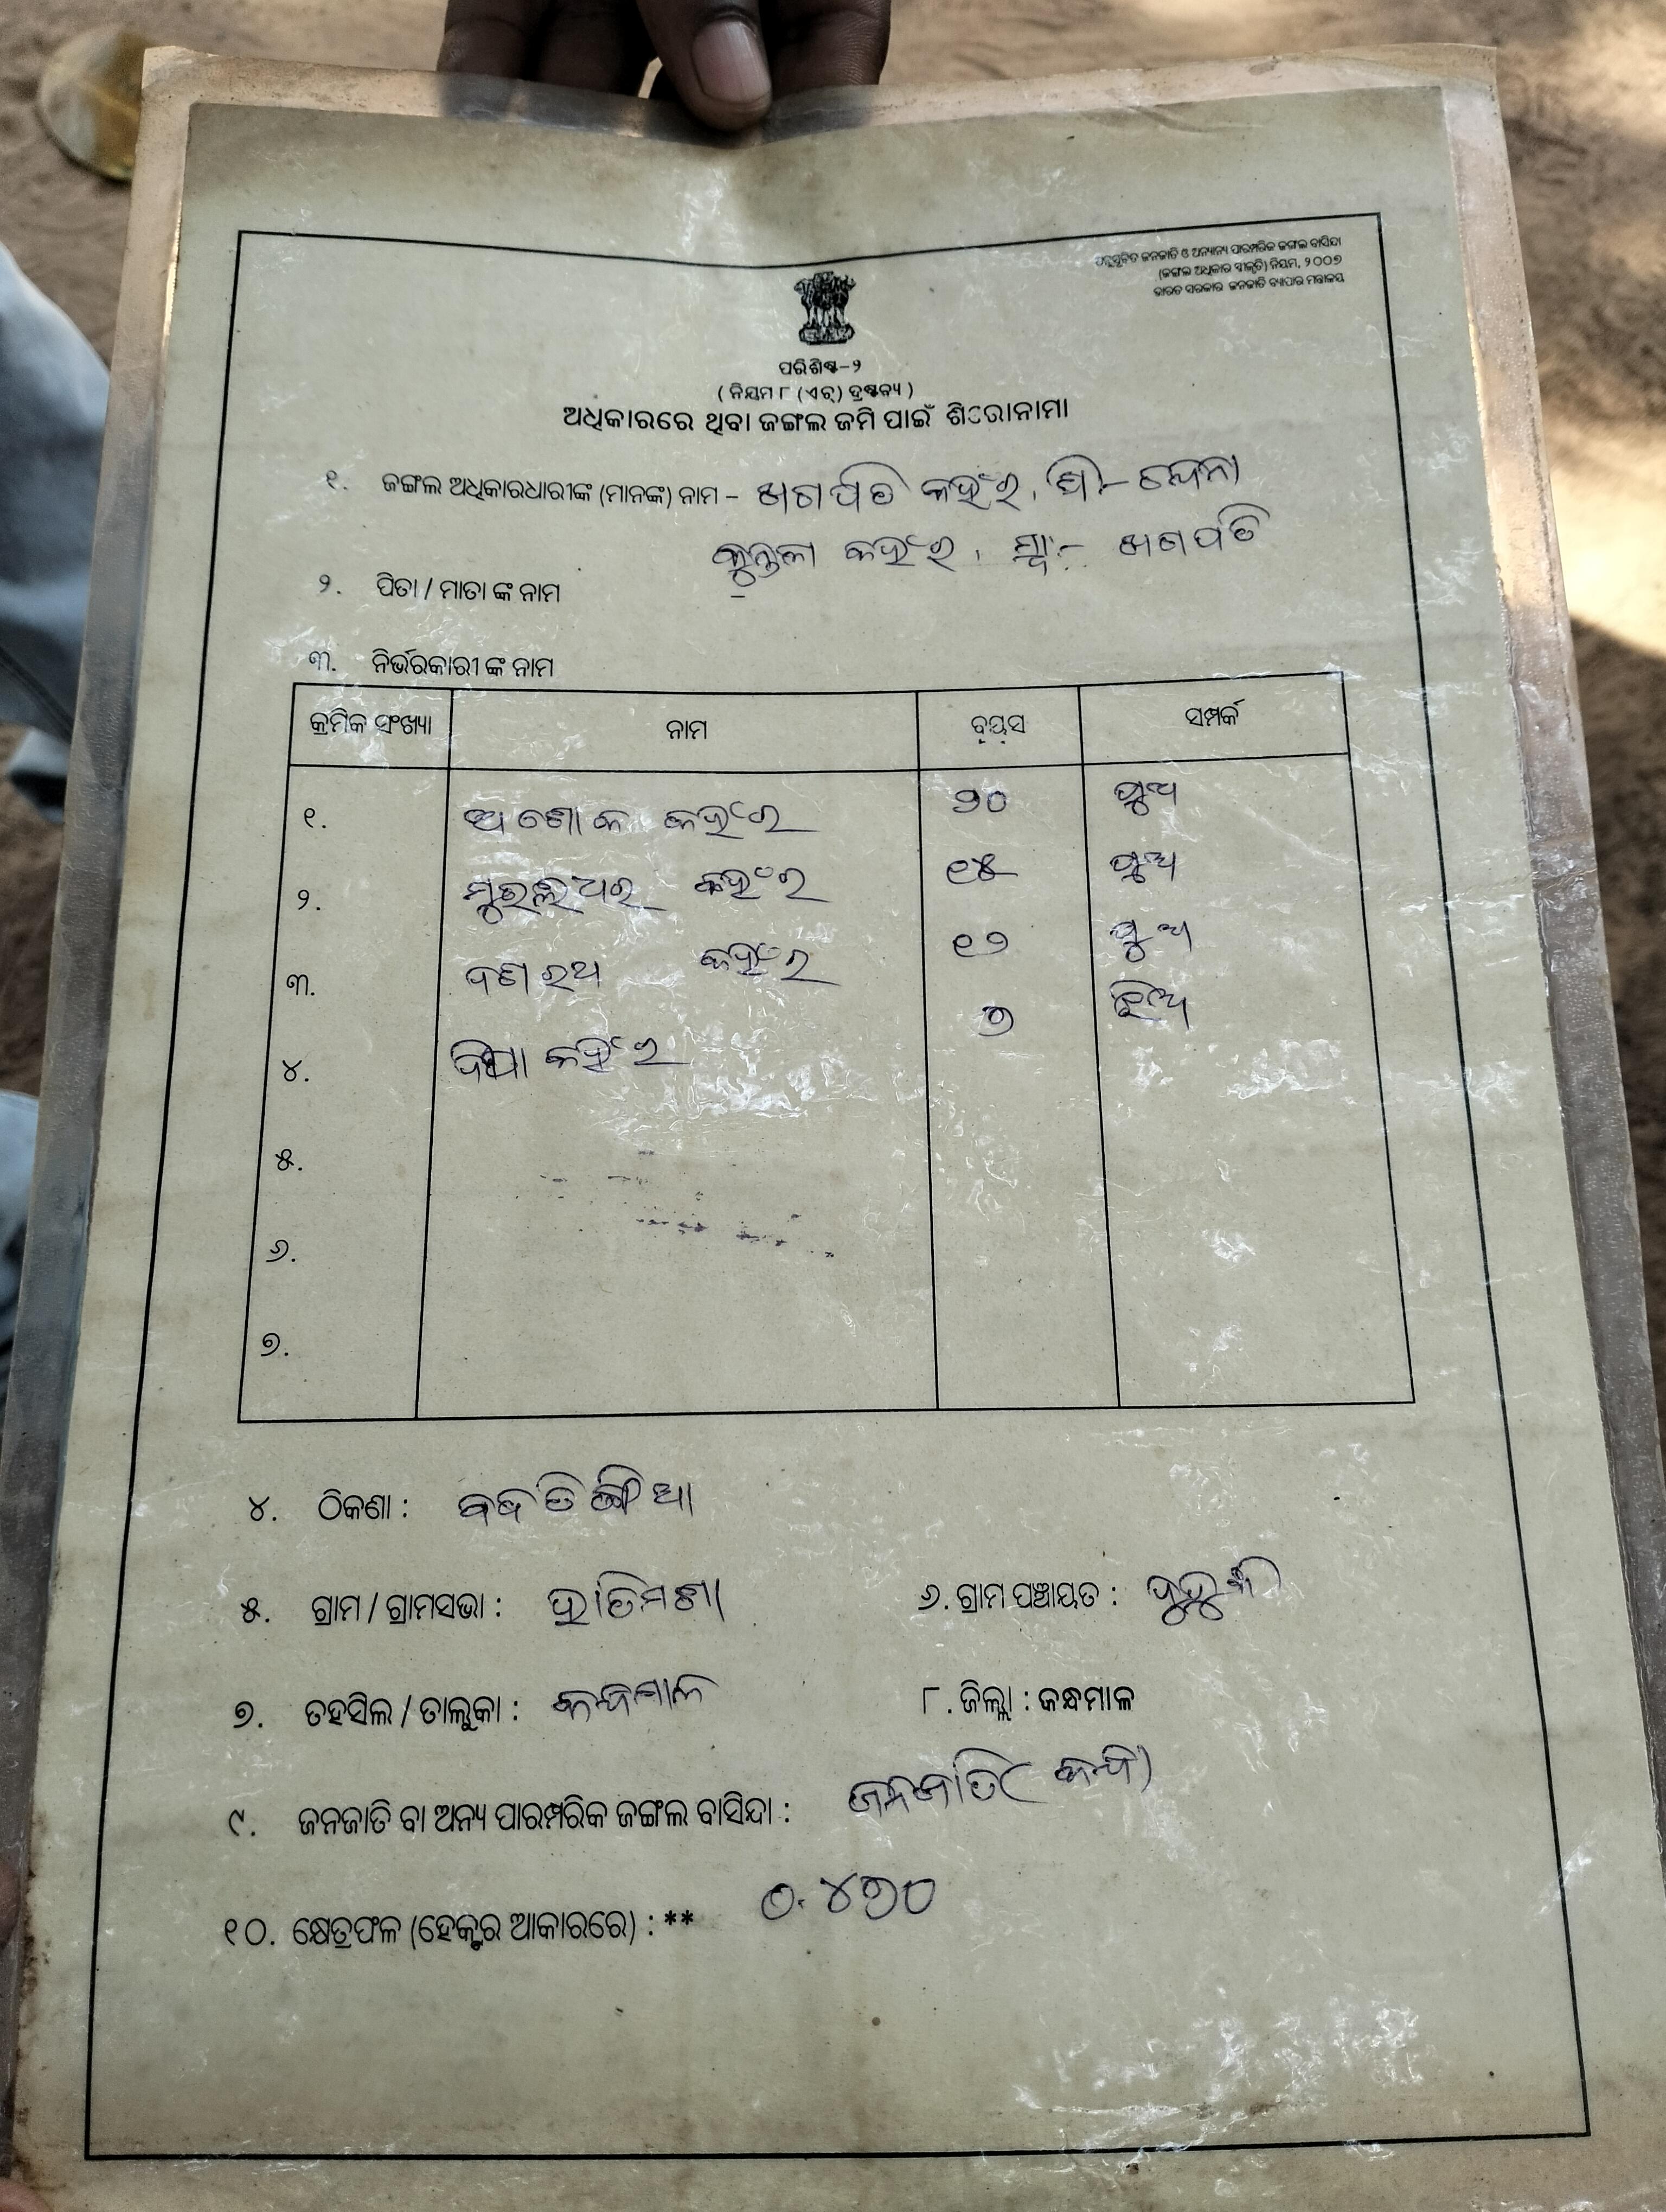 ଅନୁସୂଚିତ ଜନଜାତି ଓ ଅନ୍ୟାନ୍ୟ ପାରମ୍ପରିକ ଜଙ୍ଗଲ ବାସିନ୍ଦା
(ଜଙ୍ଗଲ ଅଧିକାର ସ୍ୱୀକୃତି) ନିୟମ, ୨୦୦୭
ଭାରତ ସରକାର ଜନଜାତି ବ୍ୟାପାର ମନ୍ତ୍ରାଳୟ
ପରିଶିଷ୍ଟ-୨
( ନିୟମ ୮ (ଏଚ୍) ଦ୍ରଷ୍ଟବ୍ୟ )
ଅଧିକାରରେ ଥିବା ଜଙ୍ଗଲ ଜମି ପାଇଁ ଶିରୋନାମା
୧. ଜଙ୍ଗଲ ଅଧିକାରଧାରୀଙ୍କ (ମାନଙ୍କ) ନାମ - ଖଗପତି କହଁର, ପି-
କୁନ୍ତଳା କହଁର, ସ୍ୱା:- ଖଗପତି
୨. ପିତା / ମାତା ଙ୍କ ନାମ
୩. ନିର୍ଭରକାରୀ ଙ୍କ ନାମ
କ୍ରମିକ ସଂଖ୍ୟା ନାମ ବୟସ ସମ୍ପର୍କ
୧. ଅଶୋକ କହଁର ୨୦ ପୁଅ
୨. କହଁର ୧୫ ପୁଅ
୩. ଦଶରଥ କହଁର ୧୨ ପୁଅ
୪. ଦିପା କହଁର ୭ ଝିଅ
୫.
୬.
୭.
୪. ଠିକଣା :
୫. ଗ୍ରାମ / ଗ୍ରାମସଭା : ୬. ଗ୍ରାମ ପଞ୍ଚାୟତ :
୭. ତହସିଲ / ତାଲୁକା : ୮. ଜିଲ୍ଲା : କନ୍ଧମାଳ
୯. ଜନଜାତି ବା ଅନ୍ୟ ପାରମ୍ପରିକ ଜଙ୍ଗଲ ବାସିନ୍ଦା : ଜନଜାତି
୧୦. କ୍ଷେତ୍ରଫଳ (ହେକ୍ଟର ଆକାରରେ) : ** ୦.୪୭୦